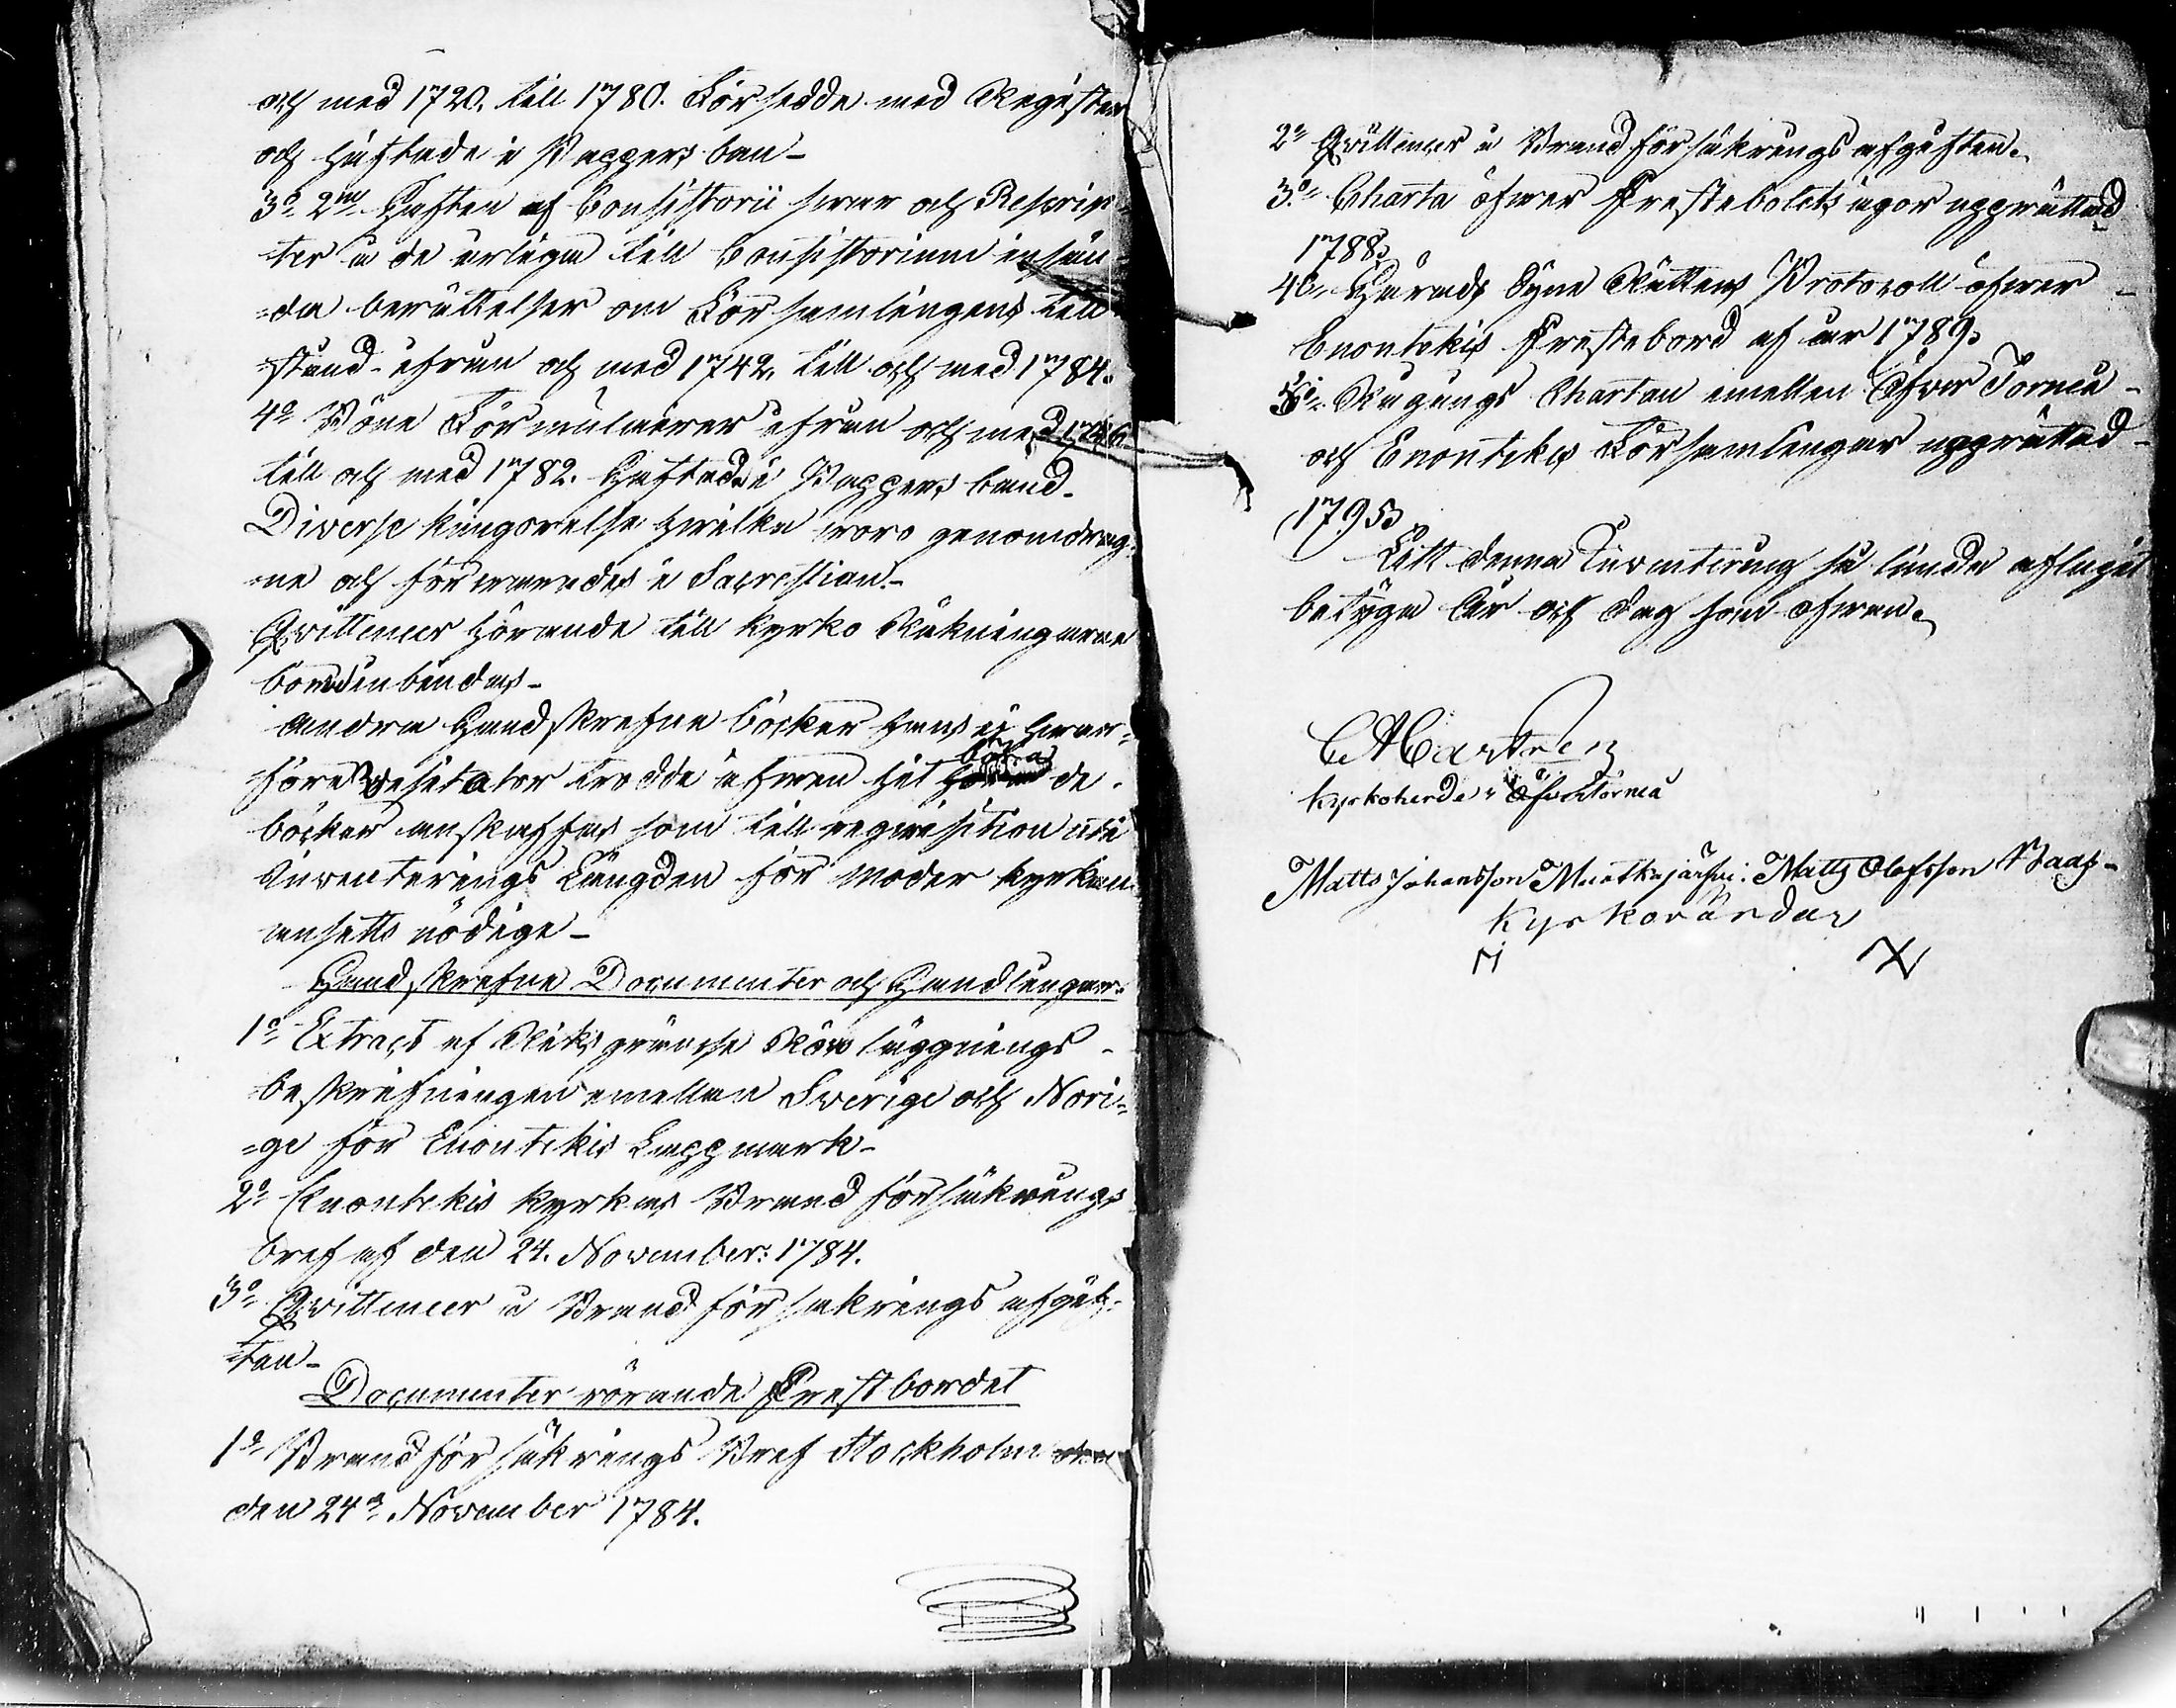 och med 1720. till 1780. Försedde med Register
och häftade i Pappers ban-
3o 2ne Häften af Consistorii swar och Rescrip-
ter å de årliga till Consistorium insän-
=da berättelser om Församlingens till-
stånd ifrån och med 1742, till och med 1784.
4o Böne Formulairer ifrån och med
till och med 1782. Häftade i Pappers band-
Diverse kungörelse hwilka woro genomdrag-
ne och förwarades i Sacrestian-
Qvittencer hörande till kyrko Räkningarne
bordsinbindas-
Andra Handskrefne böcker fans ej hwar-
före Visitator trodde äfwen hit böra de
böcker anskaffas som till reqvisition uti
Inventerings Längden för Moder kyrkan
ansetts nödige-
Handskrefne Documenter och Handlingar.
1o Extract af Riks gränse Rör läggnings-
beskrifningen emellan Sverige och Nori-
=ge för Enontekis Lappmark-
2o Enontekis kyrkas Brand försäkrings
bref af den 24. November: 1784.
3o Qvittencer å Brand försäkrings afgif-
ten-
Documenter rörande Prestbordet
1o Brandförsäkrings Bref Stockholm
den 24de November 1784.
2o Qvittencer å Brandförsäkrings afgiften.
3o Charta öfwer Prestebolets ägor upprättad
1788.
4o Härads Syne Rättens Protocoll öfwer
Enontekis Prestebord af år 1789.
5o Rågångs Chartan emellan Öfver Torneå-
och Enontekis Församlingar upprättad-
1795.
Att denna Inventering så lunda aflupit
betyga År och dag som ofwan.
kyrkoherde i Öfvertorneå
Matts Johansson Muotkajärfvi. Matts Olofsson
Kyrkovärdar